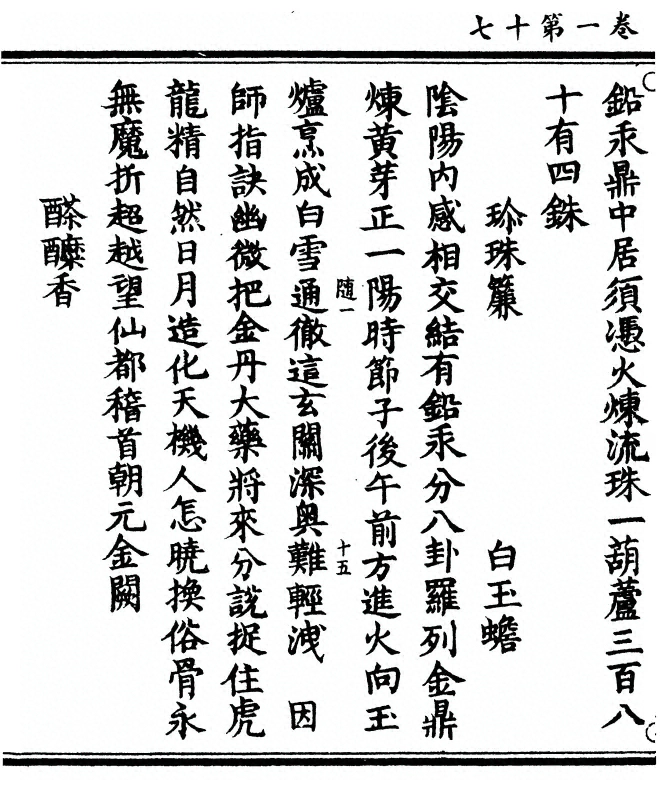 卷一第十七
鉛汞鼎中居須憑火煉流珠一葫蘆三百八
十有四銖
珎珠簾 白玉蟾
陰陽內感相交結有鉛汞分八卦羅列金鼎
煉黃芽正一陽時節子後午前方進火向玉
隨一 十五
爐烹成白雪通徹這玄關深奧難輕洩 因
師指訣幽微把金丹大藥將來分說捉住虎
龍精自然日月造化天機人怎曉換俗骨永
無魔折超越望仙都稽首朝元金闕
酴醾香